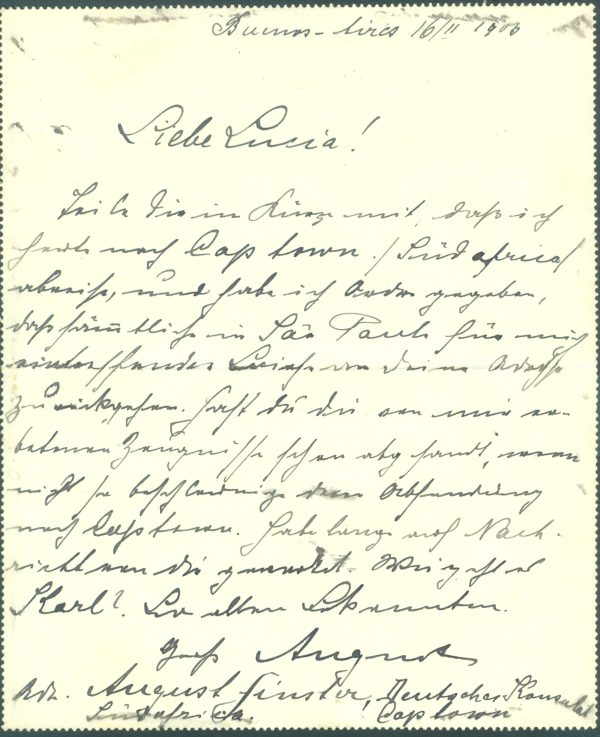 Buenos-Aires 16/II 1906
Liebe Lucia!
Teile Dir in Kürze mit, daß ich
heute nach Captown /Südafrica/
abreise, und habe ich Ordre gegeben,
daß sämtliche in São Paulo für mich
eintreffenden Briefe an Deine Adresse
zurückgehen. Hast du die von mir er-
betenen Zeugnisse schon abgesandt, wenn
nicht so beschleunige die Absendung
nach Captown. Habe lange auf Nach-
richt von dir gewartet. Wie geht es
Karl? alten Bekannten.
Gruß August
Adr. August Finster, Deutsches Konsulat
Südafrica. Captown